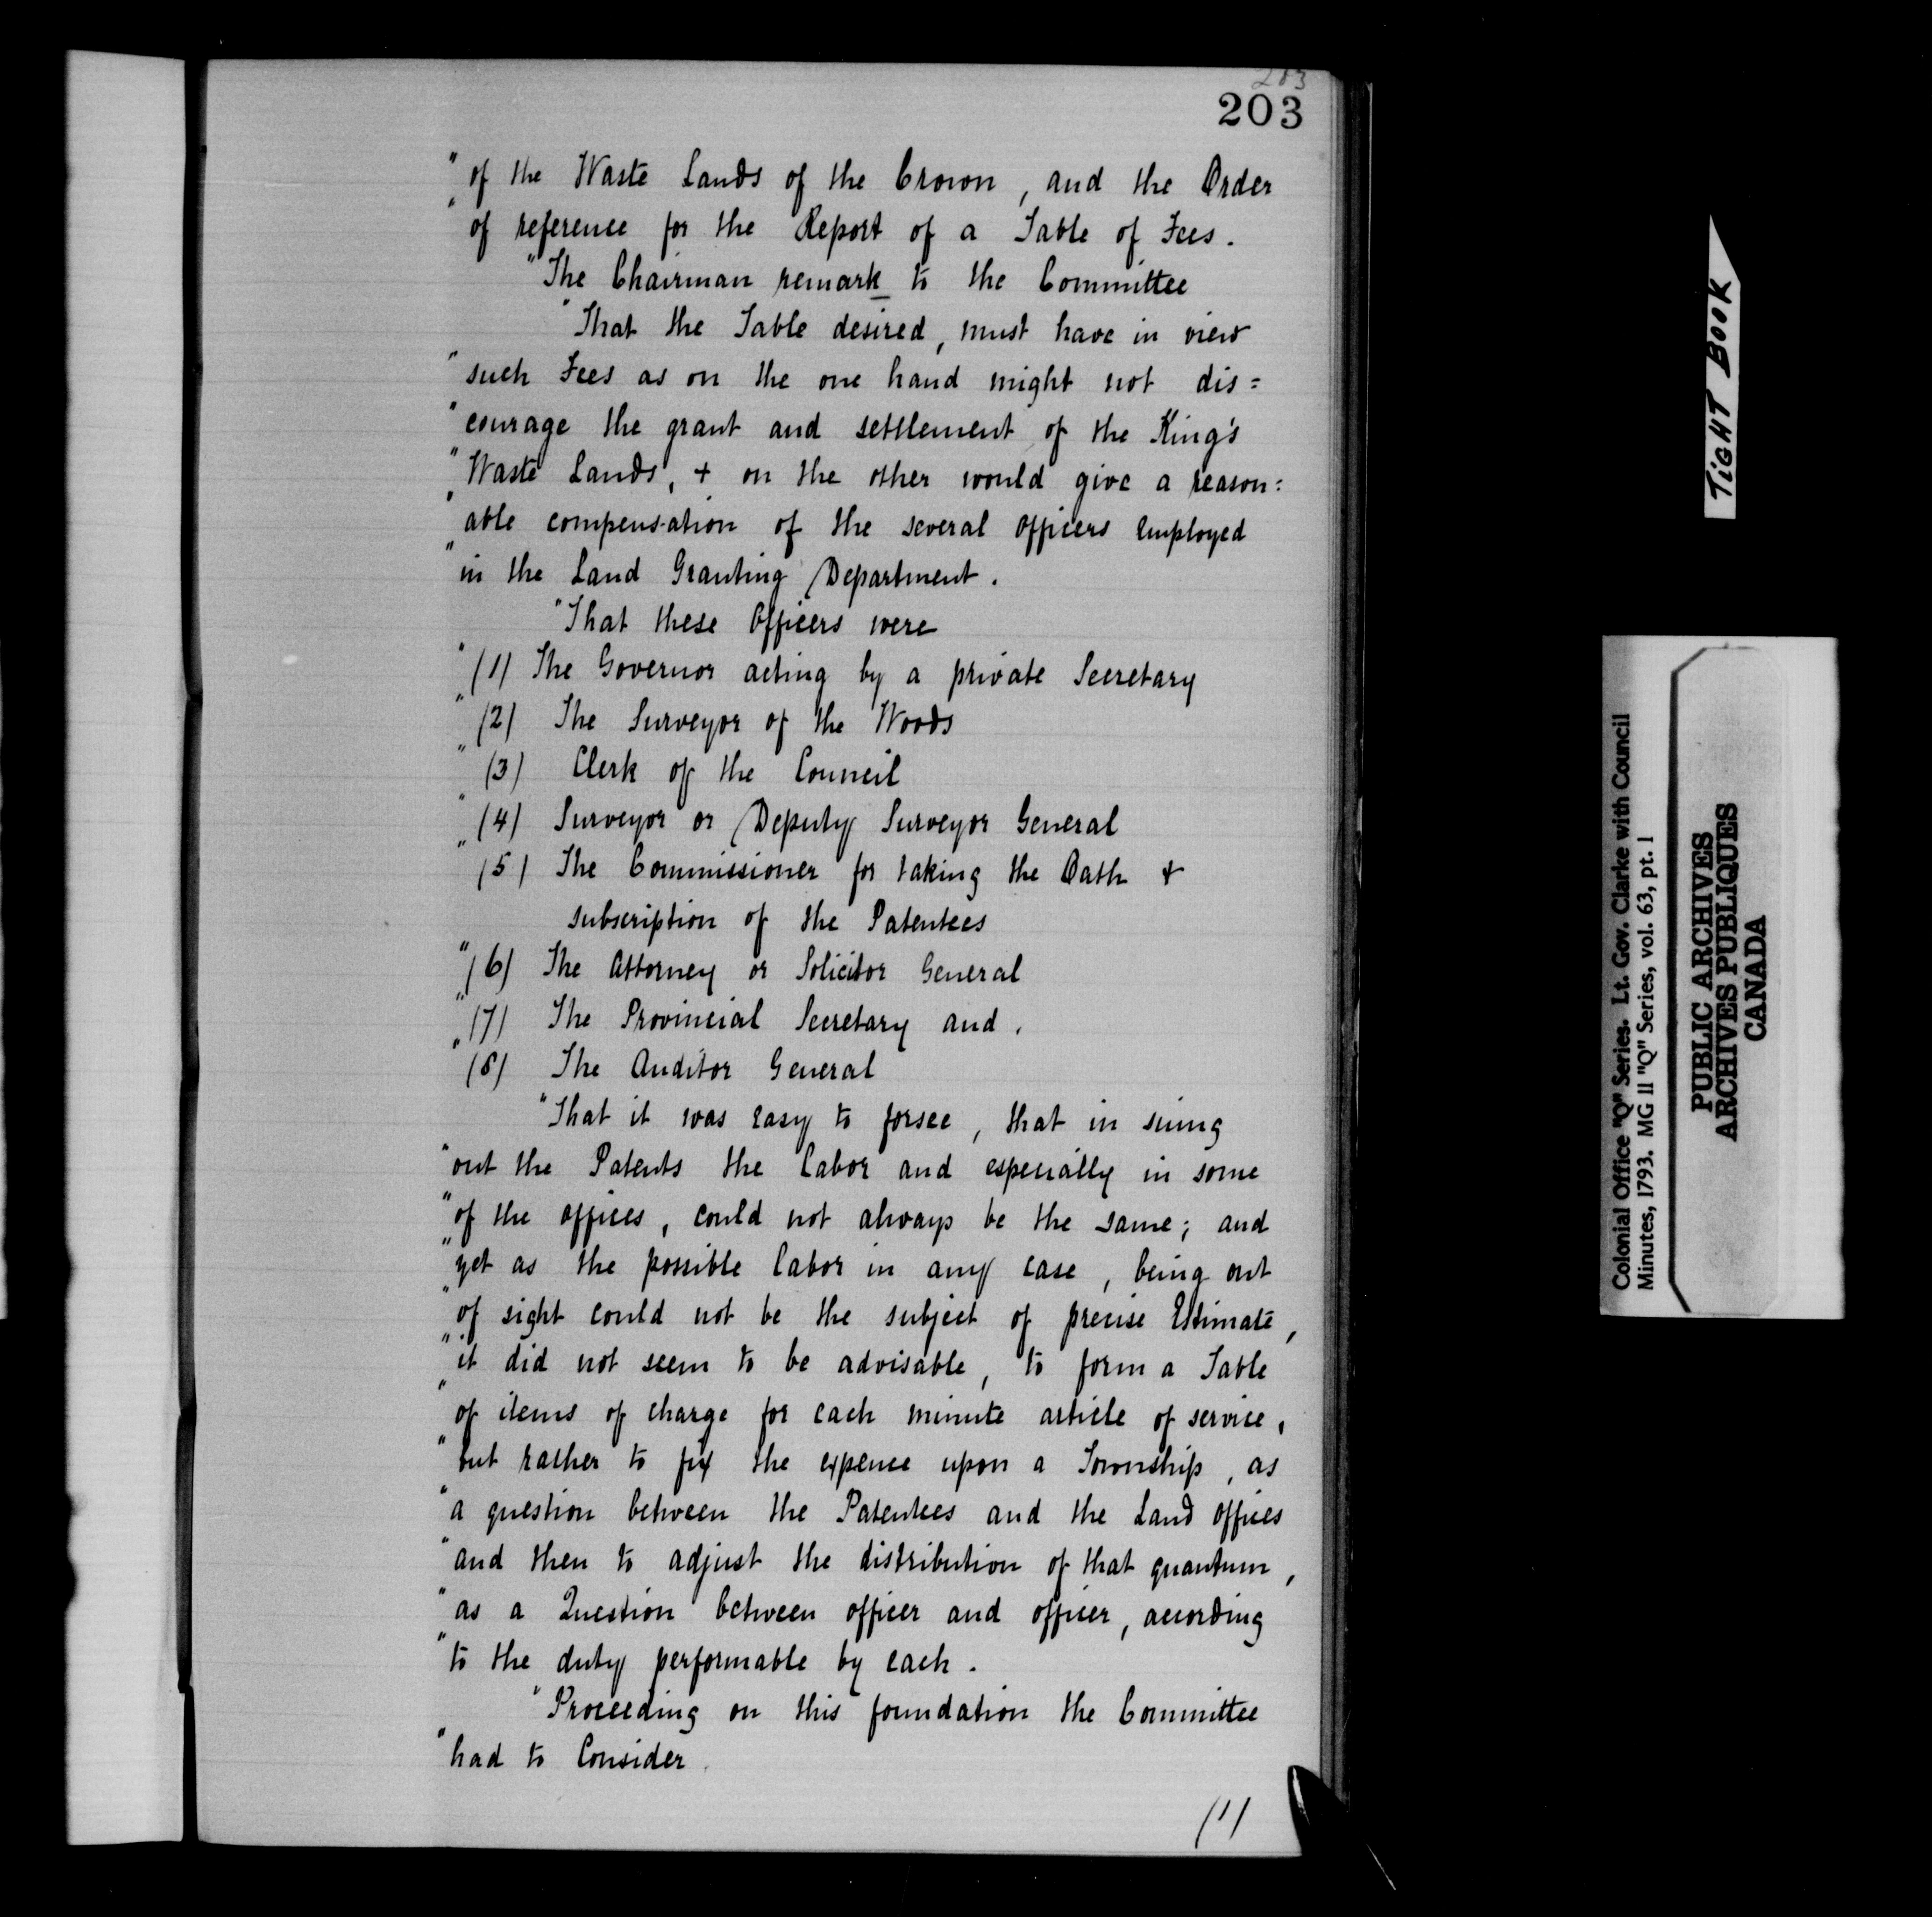 203
203
" of the Waste Lands of the Crown, and the Order
" of reference for the Report of a Table of Fees.
" The Chairman remark to the Committee
" That the Table desired, must have in view
" such Fees as on the one hand might not dis=
" courage the grant and settlement of the King's
" Waste Lands, + on the other would give a reason=
" able compensation of the several officers employed
" in the Land Granting Department.
" That these Officers were
" (1) The Governor acting by a private Secretary
" (2) The Surveyor of the Woods
" (3) Clerk of the Council
" (4) Surveyor or Deputy Surveyor General
" (5) The Commissioner for taking the Oath +
subscription of the Patentees
" (6) The Attorney or Solicitor General
" (7) The Provincial Secretary and.
" (8) The Auditor General
" That it was easy to forsee, that in suing
" out the Patents the labor and especially in some
" of the offices, could not always be the same; and
" yet as the possible labor in any case, being out
" of sight could not be the subject of precise Estimate,
" it did not seem to be advisable, to form a Table
" of items of charge for each minute article of service,
" but rather to fix the expence upon a Township, as
" a question between the Patentees and the Land offices
" and then to adjust the distribution of that quantum,
" as a Question between officer and officer, acording
" to the duty performable by each.
" Proceeding on this foundation the Committee
" had to Consider.
(1)
TIGHT BOOK
Colonial Office "Q" Series. Lt. Gov. Clarke with Council
Minutes, 1793. MG 11 "Q" Series, vol. 63, pt. 1
PUBLIC ARCHIVES
ARCHIVES PUBLIQUES
CANADA